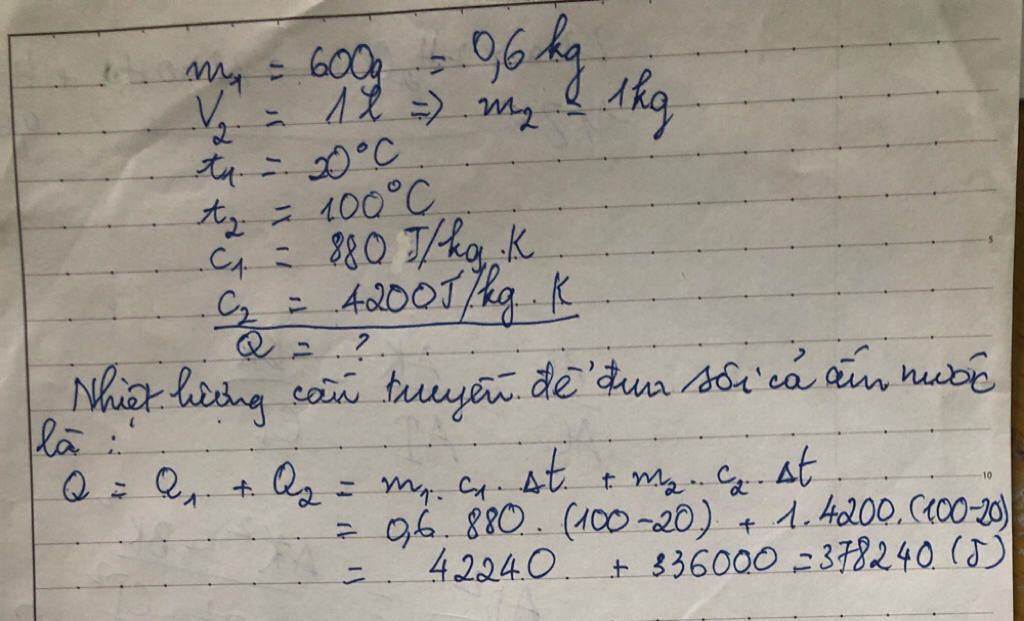 m₁ = 600g = 0,6 kg
V₂ = 1 l => m₂ = 1kg
t₁ = 20°C
t₂ = 100°C
c₁ = 880 J/kg.K
c₂ = 4200J/kg.K
Q = ?
Nhiệt lượng cần truyền để đun sôi cả ấm nước
là :
Q = Q₁ + Q₂ = m₁. c₁. Δt + m₂. c₂. Δt
= 0,6. 880. (100-20) + 1.4200.(100-20)
= 42240 + 336000 = 378240 (J)
5
10